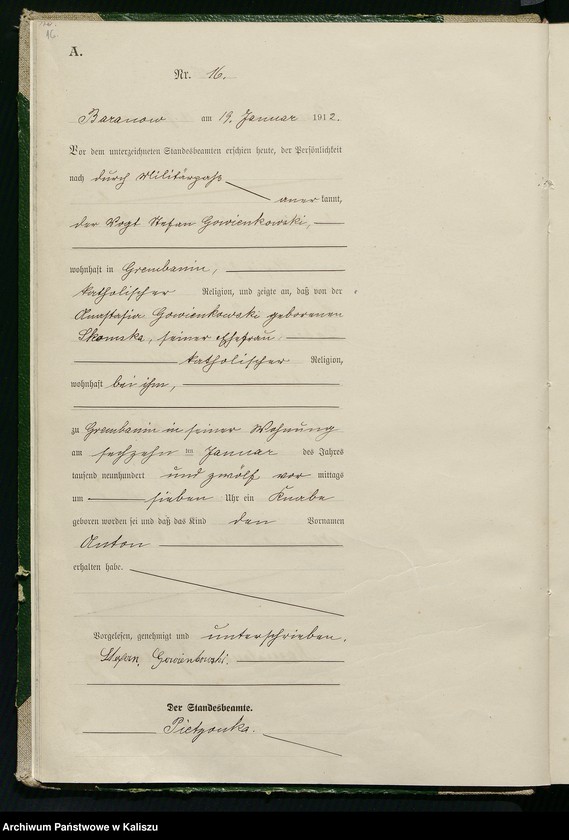 16
A.
Nr. 16.
Baranow am 19. Januar 1912.
Vor dem unterzeichneten Standesbeamten erschien heute, der Persönlichkeit
nach durch Militärpaß
anerkannt,
der Vogt Stefan Gowienkowski,
wohnhaft in Grembanin,
katholischer Religion, und zeigte an, daß von der
Anastasia Gowienkowski geborenen
Skomska, seiner Ehefrau
katholischer Religion,
wohnhaft bei ihm,
zu Grembanin in seiner Wohnung
am sechzehn ten Januar des Jahres
tausend neunhundert und zwölf vor mittags
um sieben Uhr ein Knabe
geboren worden sei und daß das Kind den Vornamen
Anton
erhalten habe.
Vorgelesen, genehmigt und unterschrieben.
Stefan Gowienkowski.
Der Standesbeamte.
Pietzonka.
Archiwum Państwowe w Kaliszu